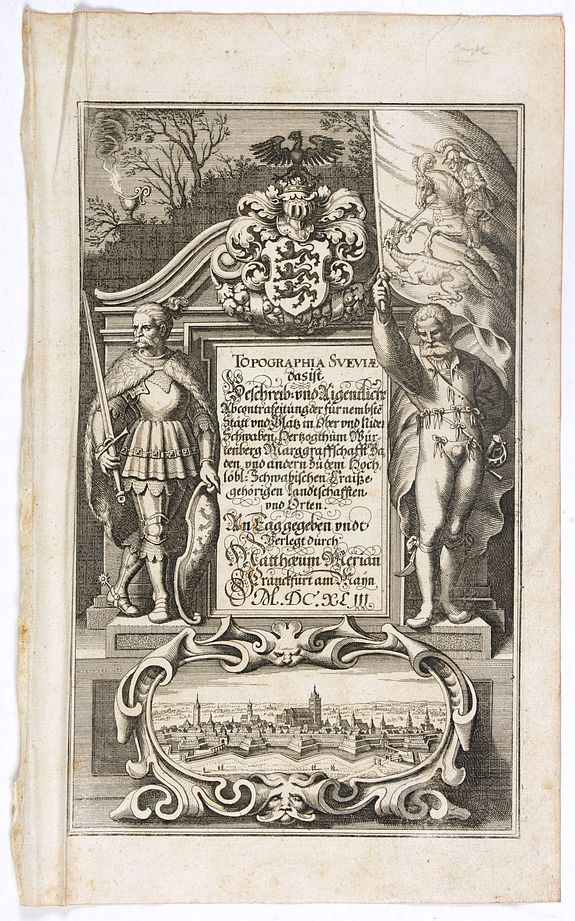 TOPOGRAPHIA SVEVIÆ
das ist
Beschreib: vnd Aigentliche
Abcontrafeitung der fürnembstē
Stätt vnd Plätz in Ober vnd Nider
Schwaben, Hertzogthum Wür=
tenberg Marggraffschafft Ba
den, vnd andern zu dem Hoch
löbl: Schwabischen Craiße
gehörigen Landtschafften
vnd Orten.
An Tag gegeben vndt
Verlegt durch
Matthæum Merian
Franckfurt am Mayn
M.DC.XLIII